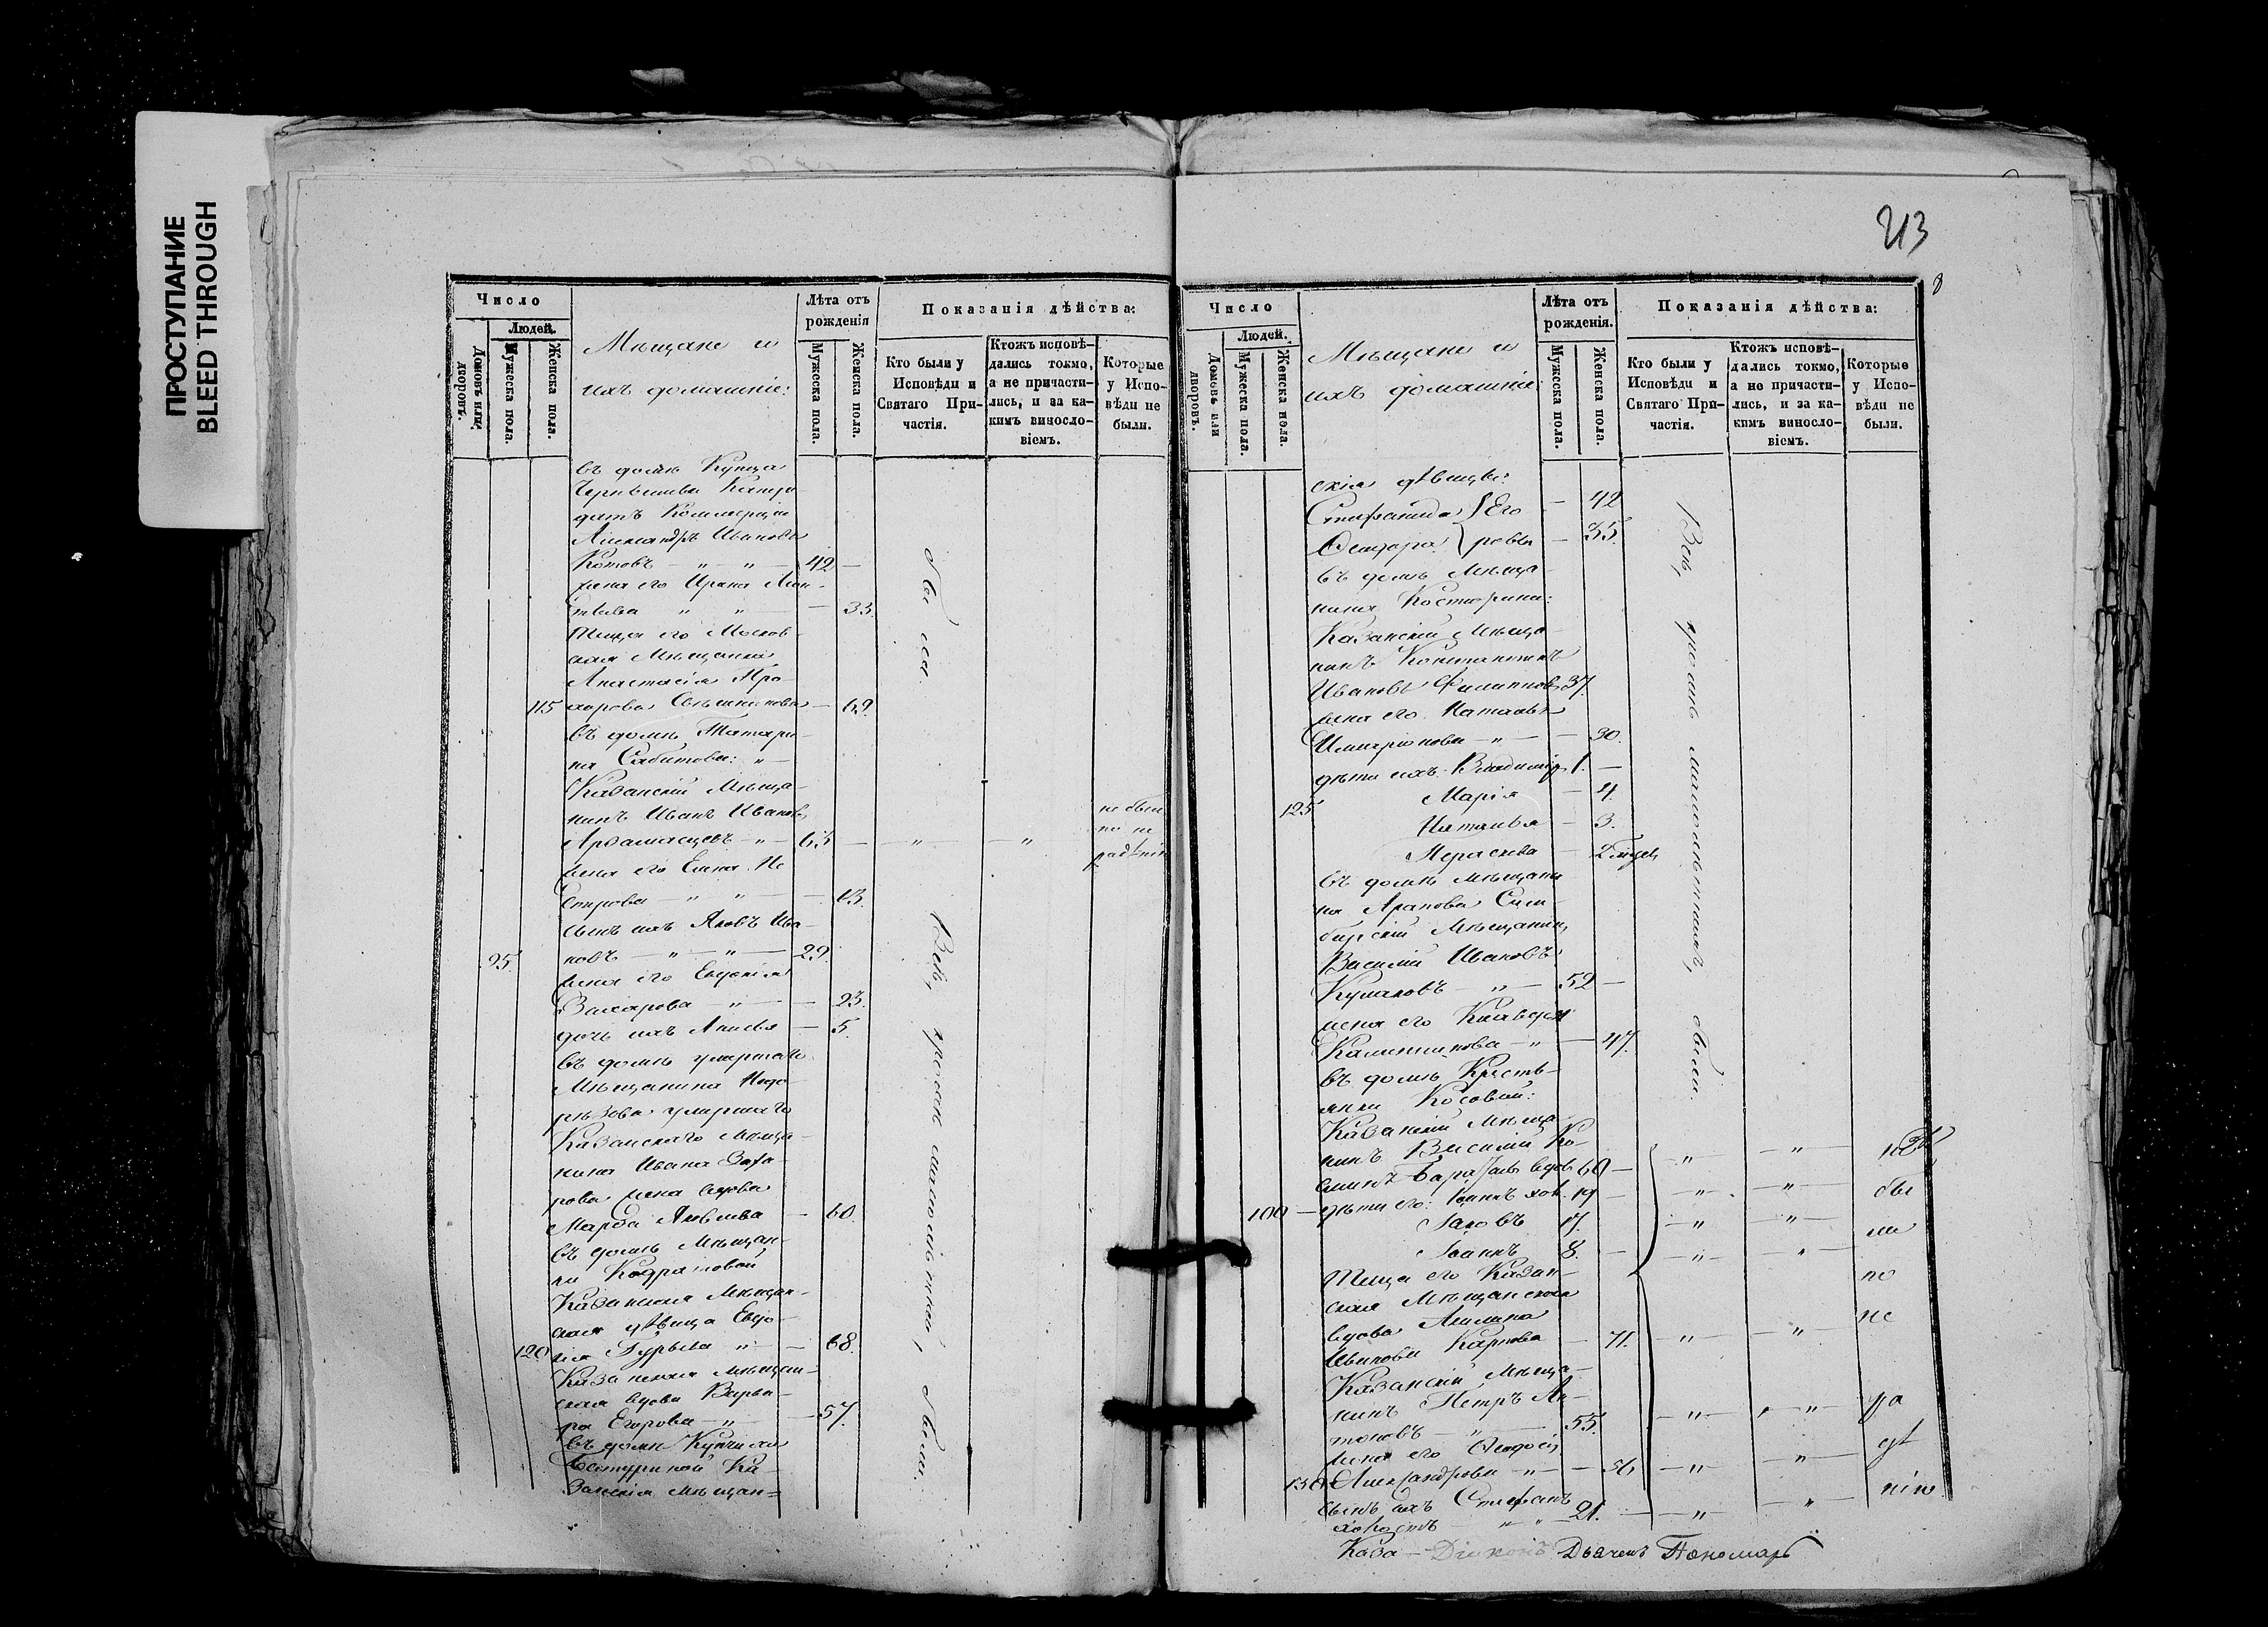 ПРОСТУПАНИЕ
BLEED THROUGH
213
Число
Людей.
Домовъ или дворовъ.
Мужеска пола.
Женска пола.
Мѣщане и
ихъ домашніе:
Лѣта отъ рожденія
Мужеска пола.
Женска пола.
Показанія дѣйства:
Кто были у Исповѣди и Святаго Причастія.
Ктожъ исповѣдались токмо, а не причастились, и за какимъ винословіемъ.
Которые у Исповѣди не были.
въ домѣ Купца
Чернышева Канди-
датъ Коммерціи
Александръ Ивановъ
Котовъ — „ — „ — 42 —
жена его Ирина Леон-
тьева „ „ — 33.
теща его Москов-
ская Мѣщанка
Анастасія Про-
115 хорова — 69.
въ домѣ Татари-
на Сабитова: „ —
Казанскій Мѣща-
нинъ Иванъ Ивановъ
Арзамасцевъ — „ — 63 — „ — „ не былъ по не радѣнію
жена его Елена Пе-
трова — „ „ — 63.
сынъ ихъ Яковъ Ива-
95. новъ — „ — „ — 29.
жена его Евдокія
Захарова — „ — 23.
дочь ихъ Анисья — 5.
въ домѣ умершаго
Мѣщанина
умершаго
Казанскаго Мѣща-
нина Ивана Заха-
рова жена вдова
Марфа Яковлева — 60.
въ домѣ Мѣщан-
ки Кондратовой
Казанская Мѣщан-
ская дѣвица Евдо-
120 кія Гурьева „ — 68.
Казанская Мѣщан-
ская вдова Варва-
ра Егорова — „ — 57.
въ домѣ Купчихи
Ка-
занскія мѣщан=
были.
Всѣ, кромѣ малолѣтней, были.
Число
Людей.
Домовъ или дворовъ.
Мужеска пола.
Женска пола.
Мѣщане и
ихъ домашніе
Лѣта отъ рожденія.
Мужеска пола.
Женска пола.
Показанія дѣйства:
Кто были у Исповѣди и Святаго Причастія.
Ктожъ исповѣдались токмо, а не причастились, и за какимъ винословіемъ.
Которые у Исповѣди не были.
скія дѣвицы:
Стефанида } Его — 42
Ѳеодора } ревы — 35.
въ домѣ Мѣща-
нина Костюрина:
Казанскій Мѣща-
нинъ Константинъ
Ивановъ Филипповъ 37.
жена его Наталья
Илларіонова — „ — 30.
дѣти ихъ: Владиміръ 1. —
125 Марія — 4.
Наталья — 3.
Параскева — 2
въ домѣ мѣщани-
на Арапова Сим-
бирскій Мѣщанинъ
Василій Ивановъ
Кумаковъ — „ — 52 —
жена его Клавдія
Калинникова — „ — 47.
въ домѣ Кресть-
янки Косовой:
Казанскій Мѣща-
нинъ Василій Ко-
вдовъ 60 — „ — „
100 — дѣти его: хол. 19 — „ — „
Іаковъ 17. — „ — „
Іоаннъ 8. — „ — „
теща его Казан-
ская Мѣщанская
вдова Акилина
Иванова Карпова — 71. — „ — „
Казанскій Мѣща-
нинъ Петръ Ан-
тоновъ — „ — 55. — „ — „
жена его Ѳеодосія
130 Александрова — „ — 56 — „ — „
сынъ ихъ Стефанъ
холостъ „ „ 21. — „ — „
не
бы
ли
по
не
ра
дѣ
нію
Всѣ, кромѣ малолѣтнихъ, были.
Каза — Діаконъ Дьячекъ Пономарь